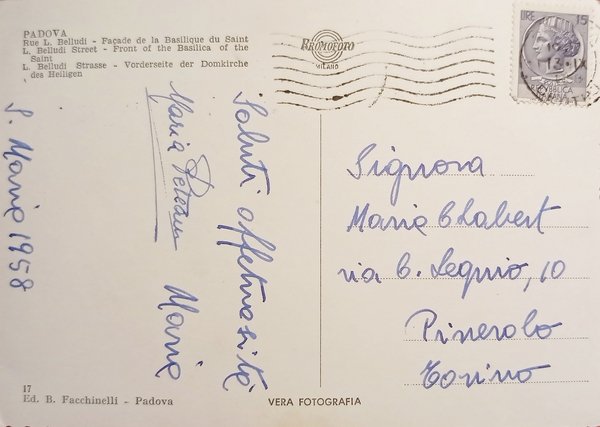 PADOVA
Rue L. Belludi - Façade de la Basilique du Saint
L. Belludi Street - Front of the Basilica of the
Saint
L. Belludi Strasse - Vorderseite der Domkirche
des Heiligen
BROMOFOTO
MILANO
LIRE 15
S. Maria 1958
Saluti affettuosità
Maria
Maria
Signora
Maria Chabert
via C. Lequio, 10
Pinerolo
Torino
17
Ed. B. Facchinelli - Padova
VERA FOTOGRAFIA